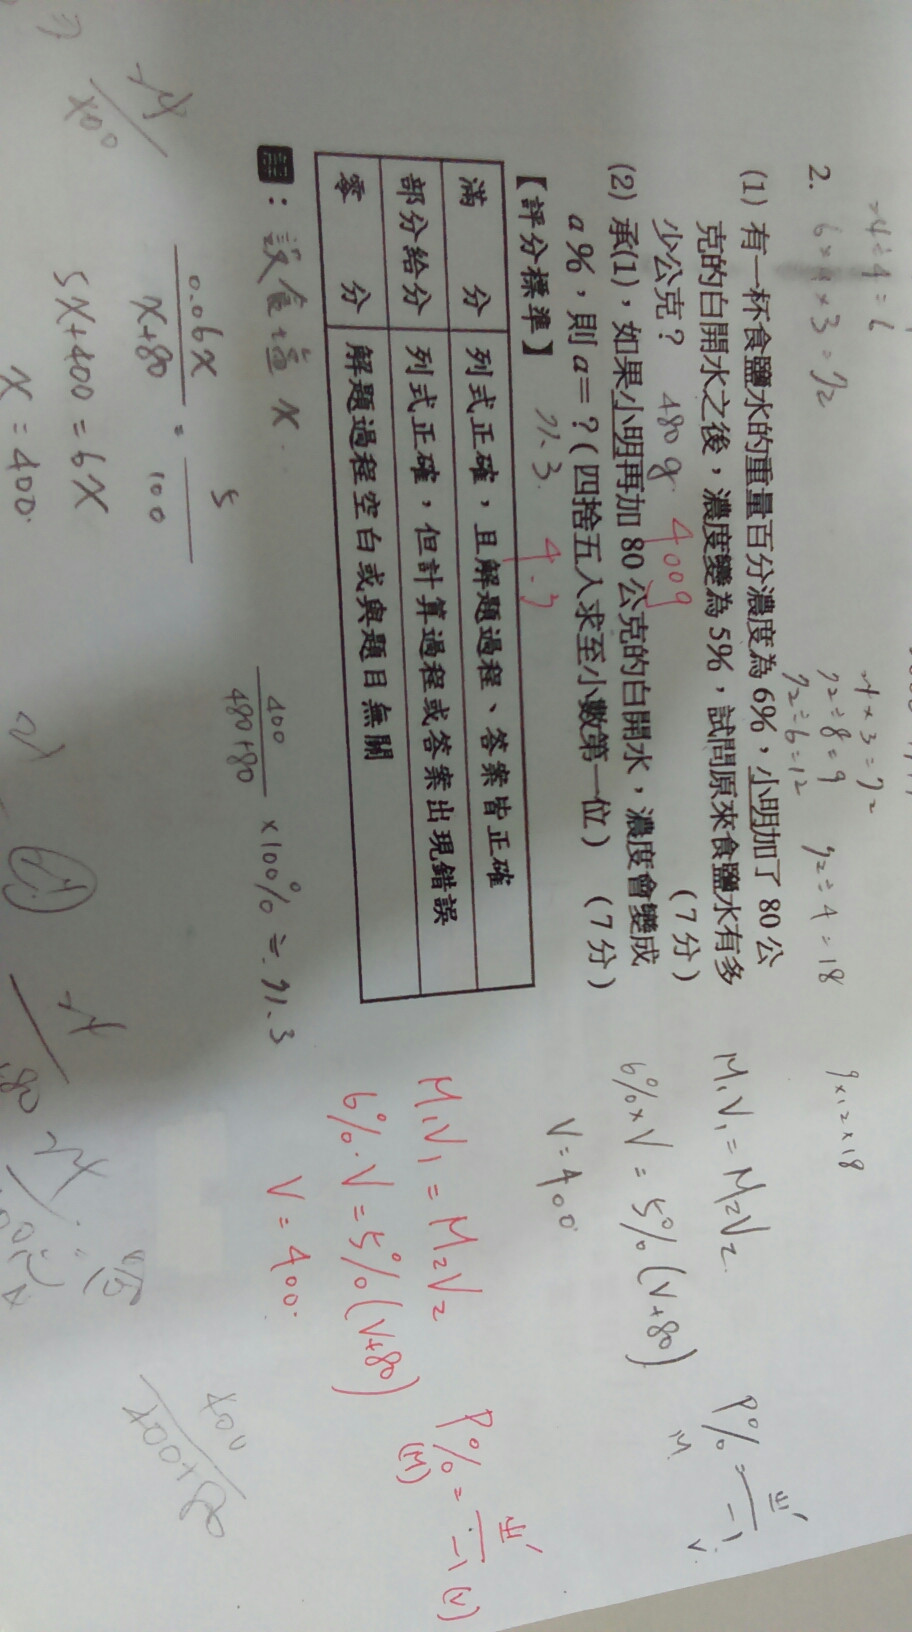 24÷4=6
6×4×3=72
24×3=72
72÷8=9
72÷6=12
72÷4=18
9×12×18
2.
(1) 有一杯食鹽水的重量百分濃度為6%，小明加了80公
克的白開水之後，濃度變為5%，試問原來食鹽水有多
少公克？ 480g. 400g (7分)
(2) 承(1)，如果小明再加80公克的白開水，濃度會變成
a%，則a=？(四捨五入求至小數第一位) (7分)
71.3. 4.3
【評分標準】
滿 分 列式正確，且解題過程、答案皆正確
部分給分 列式正確，但計算過程或答案出現錯誤
零 分 解題過程空白或與題目無關
解：設食鹽 X.
0.06X/X+80 = 5/100
5X+400=6X
X=400.
400/480+80 ×100%≒71.3
M₁V₁=M₂V₂
6%×V=5%(V+80)
V=400
P%=
M
V
M₁V₁=M₂V₂
6%·V=5%(V+80)
V=400.
P%=
(M)
(V)